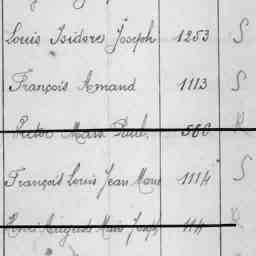 Louis Isidore Joseph 1253 S
François Amand 1113 S
Marie Paul 560 R
François Louis Jean Marie 1114 S
Marie Joseph 114 R